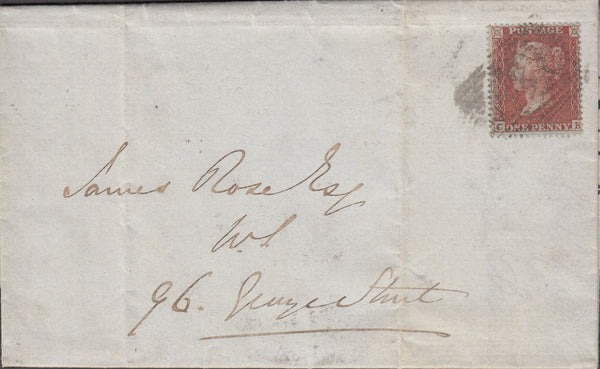 POSTAGE
C ONE PENNY E
James Rose Esq
W.S
96. George Street